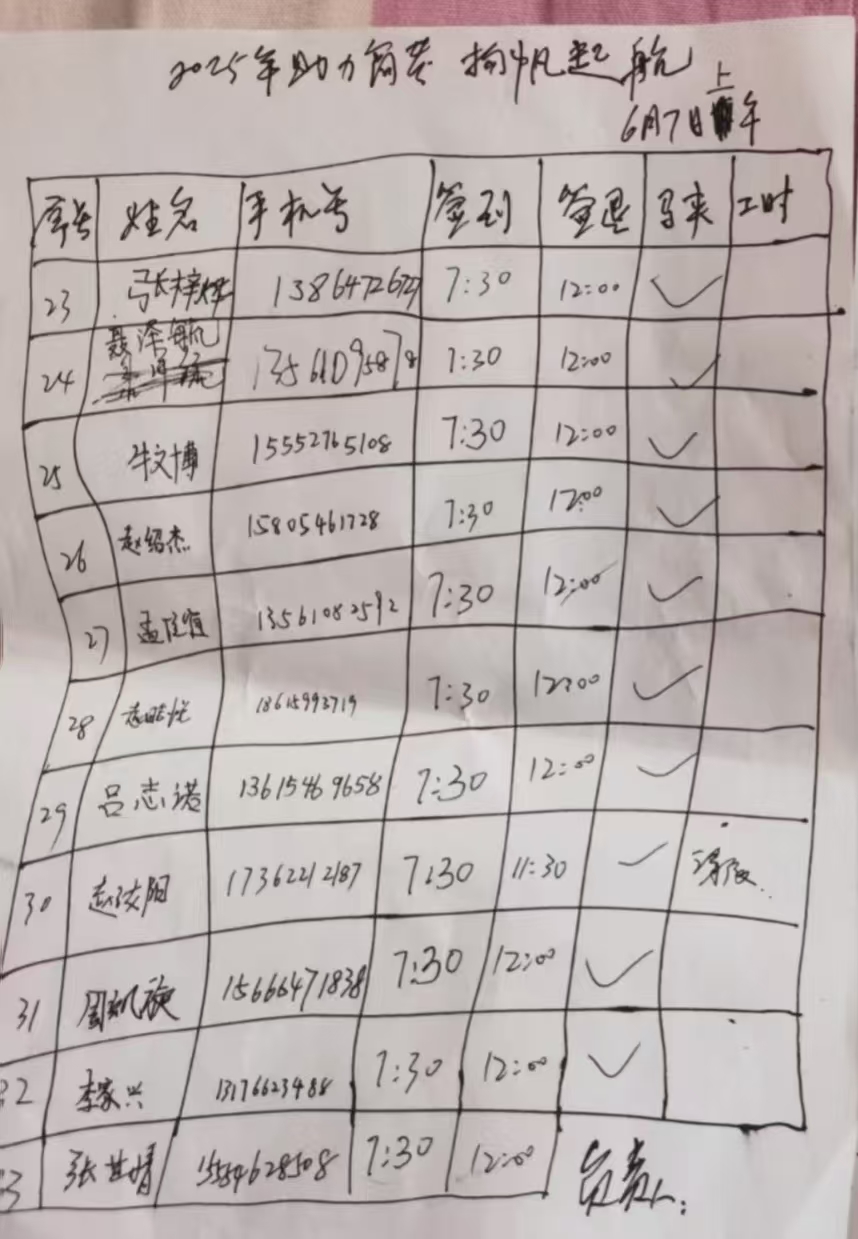 2025年助力 扬帆起航
6月7日上午
序号 姓名 手机号 签到 签退 马夹 工时
23 张梓烨 13864726727 7:30 12:00 ✓
24 聂泽航 13561095878 7:30 12:00 ✓
25 牛文博 15552765108 7:30 12:00 ✓
26 赵绍杰 15805461728 7:30 12:00 ✓
27 孟 13561082592 7:30 12:00 ✓
28 18615993719 7:30 12:00 ✓
29 吕志诺 13615469658 7:30 12:00 ✓
30 赵 阳 17362212187 7:30 11:30 ✓
31 周凯旋 15666471838 7:30 12:00 ✓
32 李家兴 13176623488 7:30 12:00 ✓
33 张甘婧 15584628508 7:30 12:00
负责人: